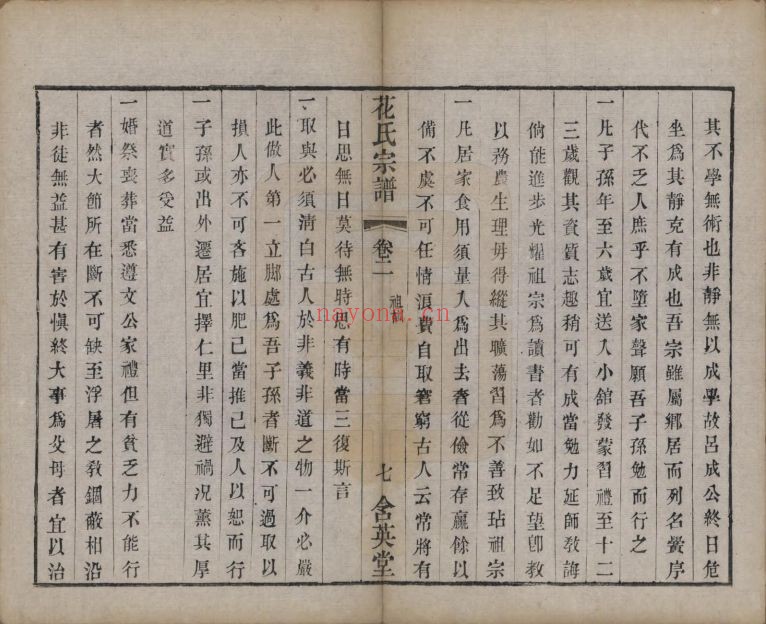 其不學無術也非靜無以成學故呂成公終日危
坐爲其靜克有成也吾宗雖屬鄉居而列名黌序
代不乏人庶乎不墮家聲願吾子孫勉而行之
一凡子孫年至六歲宜送入小舘發蒙習禮至十二
三歲觀其資質志趣稍可有成當勉力延師敎誨
倘能進步光耀祖宗爲讀書者勸如不足望卽敎
以務農生理毋得縱其曠蕩習爲不善致玷祖宗
一凡居家食用須量入爲出去奢從儉常存贏餘以
備不虞不可任情浪費自取窘窮古人云常將有
花氏宗譜
卷二
祖訓
七
含英堂
nayona.cn
日思無日莫待無時思有時當三復斯言
一取與必須淸白古人於非義非道之物一介必嚴
此做人第一立脚處爲吾子孫者斷不可過取以
損人亦不可吝施以肥己當推己及人以恕而行
一子孫或出外遷居宜擇仁里非獨避禍况薰其厚
道實多受益
一婚祭喪葬當悉遵文公家禮但有貧乏力不能行
者然大節所在斷不可缺至浮屠之敎錮蔽相沿
非徒無益甚有害於愼終大事爲父母者宜以治